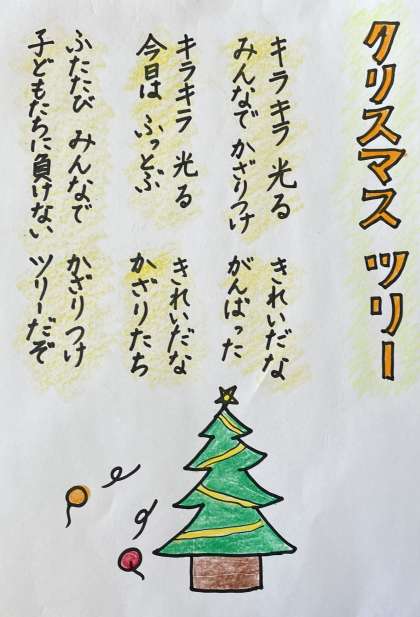 クリスマス ツリー
キラキラ 光る きれいだな
みんなで かざりつけ がんばった
キラキラ 光る きれいだな
今日は ふっとぶ かざりたち
ふたたび みんなで かざりつけ
子どもたちに負けない ツリーだぞ